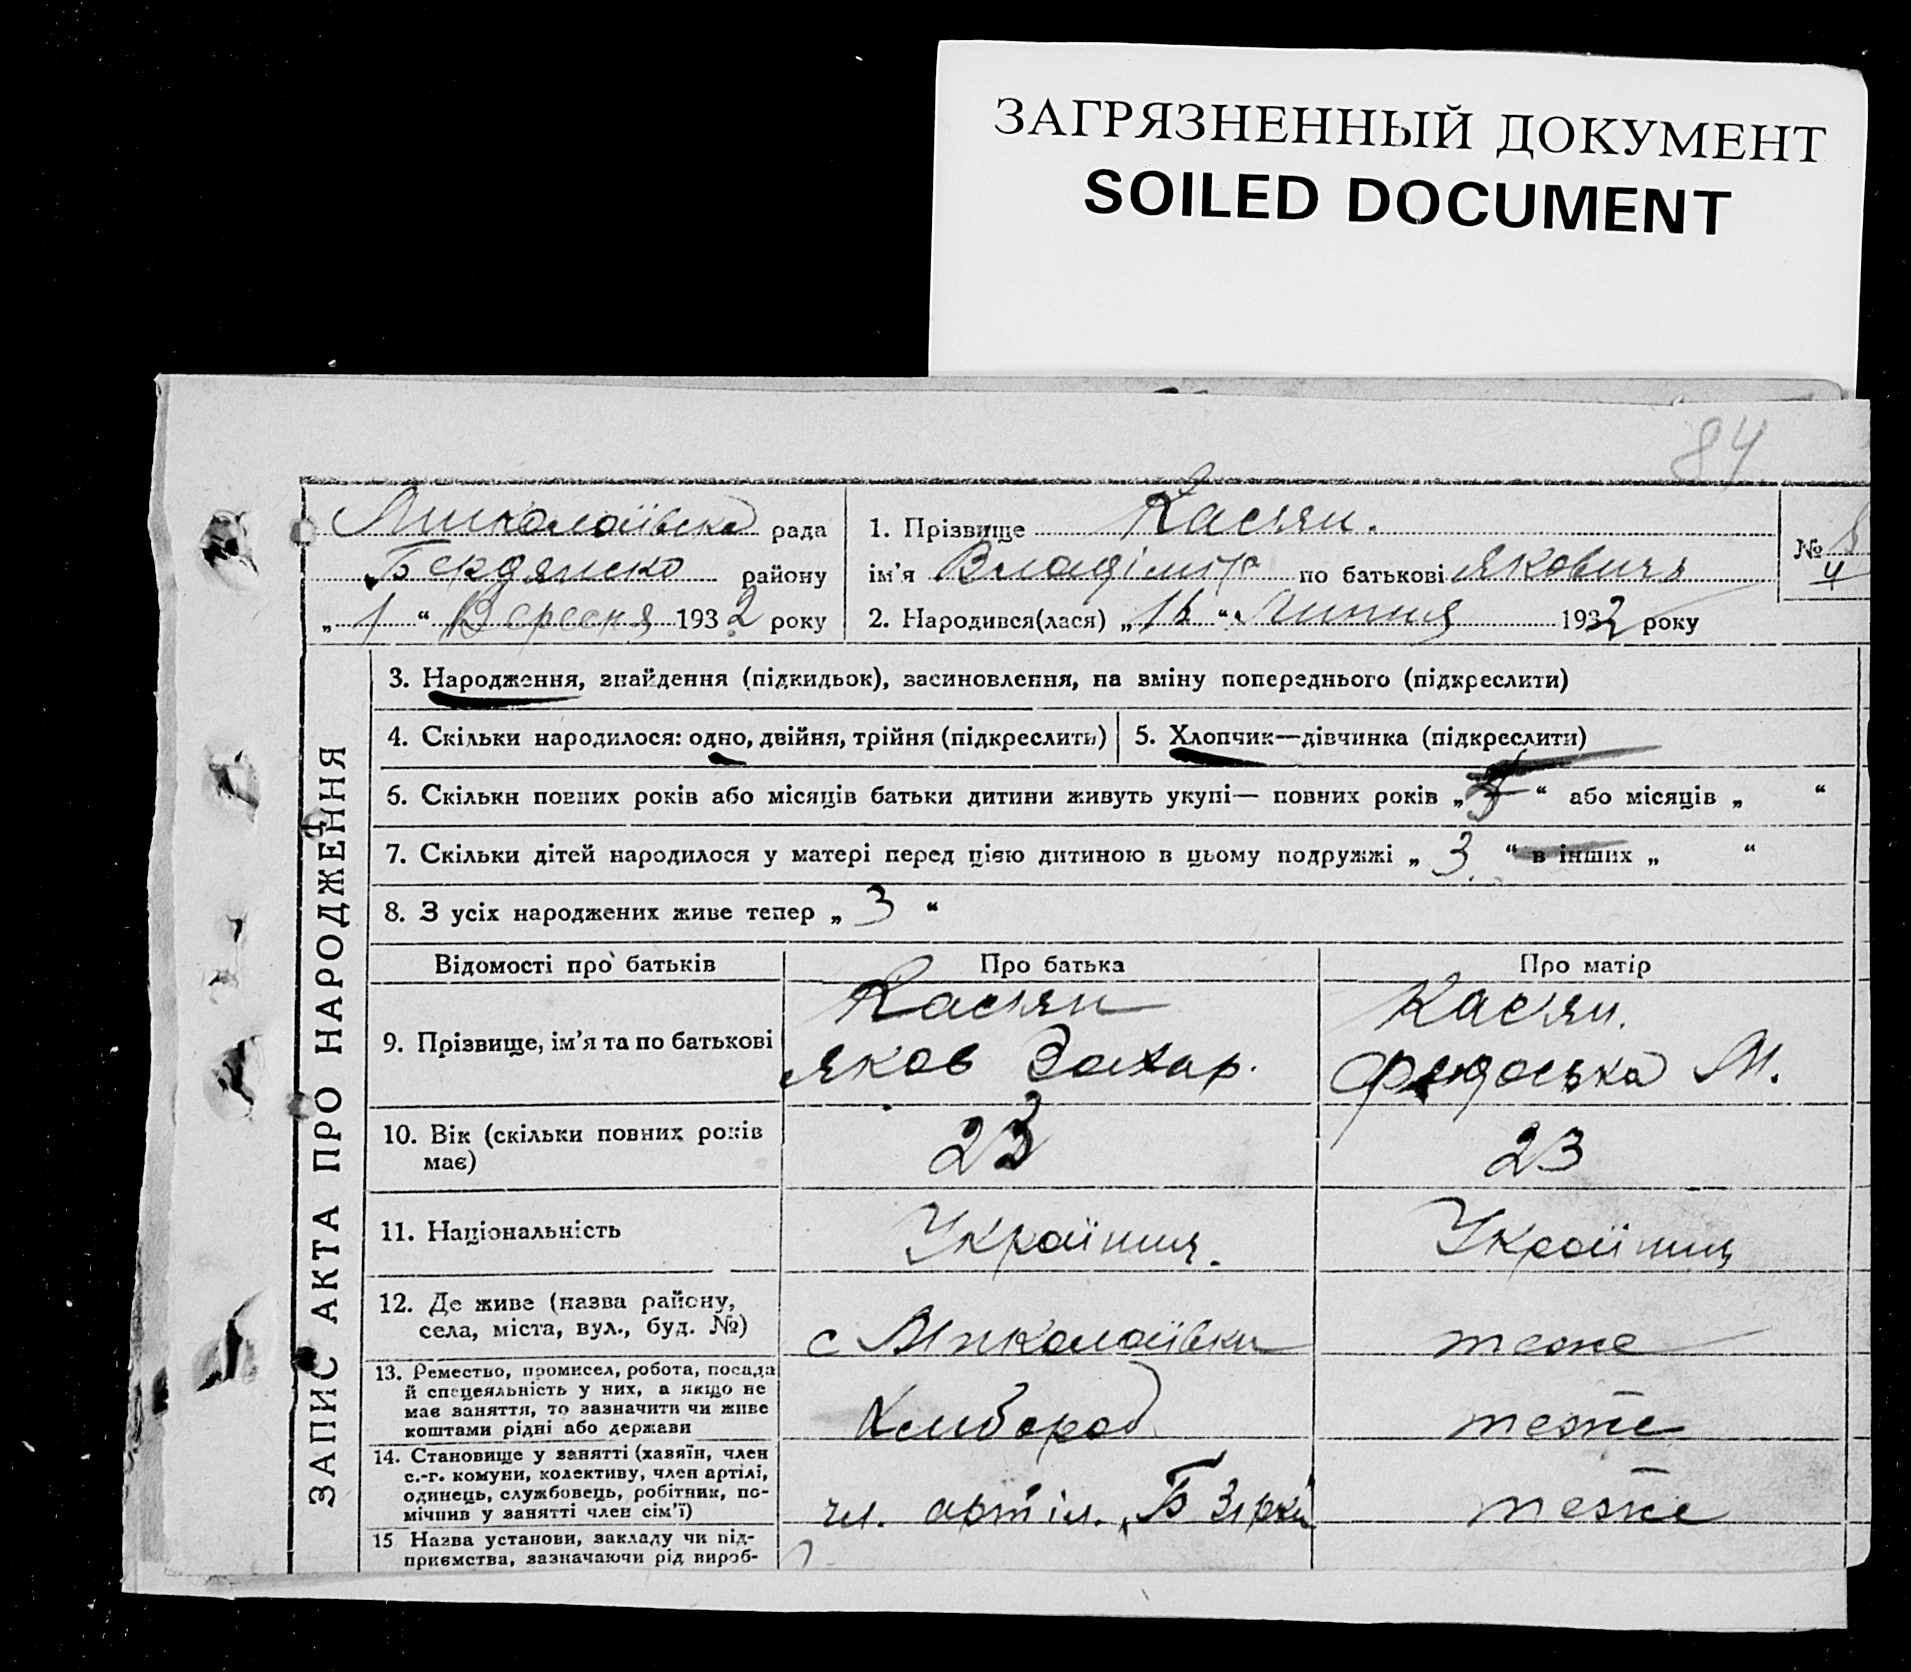 ЗАГРЯЗНЕННЫЙ ДОКУМЕНТ
SOILED DOCUMENT
84
Миколаївска рада
Бердянско району
„ 1 “ Вересня 1932 року
1. Прізвище Касян.
ім’я Владімір по батькові Якович
2. Народився(лася) „ “ Липня 1932 року
№
4
ЗАПИС АКТА ПРО НАРОДЖЕННЯ
3. Народження, знайдення (підкидьок), засиновлення, на зміну попереднього (підкреслити)
4. Скільки народилося: одно, двійня, трійня (підкреслити)
5. Хлопчик—дівчинка (підкреслити)
6. Скільки повних років або місяців батьки дитини живуть укупі— повних років „ “ або місяців „ “
7. Скільки дітей народилося у матері перед цією дитиною в цьому подружжі „ 3 “ в інших „ “
8. З усіх народжених живе тепер „ 3 “
Відомості про батьків
Про батька
Про матір
9. Прізвище, ім’я та по батькові
Касян
Яков Захар.
Касян.
Федоська М.
10. Вік (скільки повних років
має)
23
23
11. Національність
Україниц.
Україниц
12. Де живе (назва району,
села, міста, вул., буд. №)
с Миколаївки
теже
13. Ремество, промисел, робота, посада
й спецеяльність у них, а якщо не
має заняття, то зазначити чи живе
коштами рідні або держави
Хлибороб
теже
14. Становище у занятті (хазяїн, член
с.-г. комуни, колективу, член артілі,
одинець, службовець, робітник, по-
мічник у занятті член сім’ї)
чл. артіл. Б Зірки
теже
15 Назва установи, закладу чи під-
приємства, зазначаючи рід вироб-